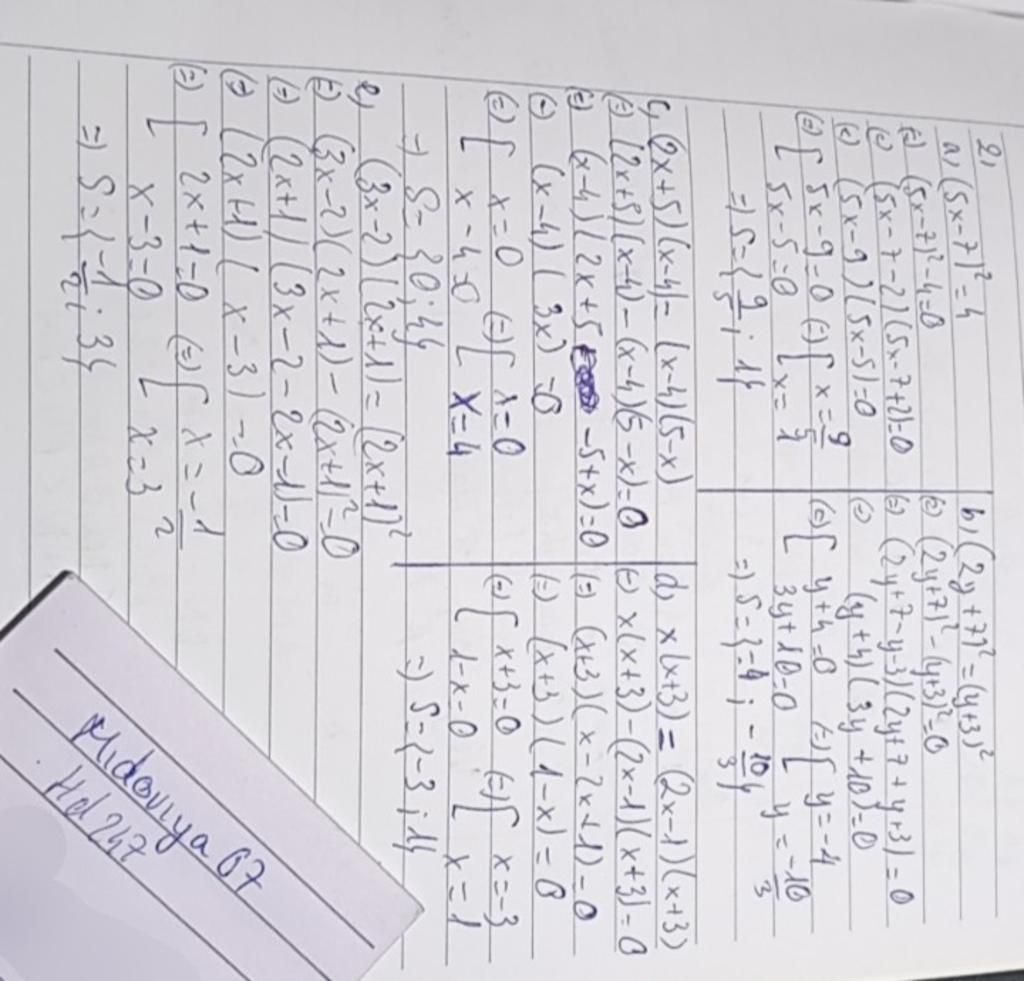 2)
a) (5x-7)² = 4
(=) (5x-7)² - 4 = 0
(=) (5x-7-2)(5x-7+2) = 0
(=) (5x-9)(5x-5) = 0
(=) [ 5x-9=0 (=) [ x = 9/5
5x-5=0 [ x = 1
=) S = { 9/5 ; 1}
b) (2y+7)² = (y+3)²
(=) (2y+7)² - (y+3)² = 0
(=) (2y+7-y-3)(2y+7+y+3) = 0
(=) (y+4)(3y+10) = 0
(=) [ y+4=0 (=) [ y = -4
3y+10=0 [ y = -10/3
=) S = {-4 ; -10/3}
c) (2x+5)(x-4) = (x-4)(5-x)
(=) (2x+5)(x-4) - (x-4)(5-x) = 0
(=) (x-4)(2x+5 -5+x) = 0
(=) (x-4)(3x) = 0
(=) [ x=0 (=) [ x=0
x-4=0 [ x=4
=) S = {0;4}
d) x(x+3) = (2x-1)(x+3)
(=) x(x+3) - (2x-1)(x+3) = 0
(=) (x+3)(x-2x+1) = 0
(=) (x+3)(1-x) = 0
(=) [ x+3=0 (=) [ x=-3
1-x=0 [ x=1
=) S = {-3;1}
e) (3x-2)(2x+1) = (2x+1)²
(=) (3x-2)(2x+1) - (2x+1)² = 0
(=) (2x+1)(3x-2-2x-1) = 0
(=) (2x+1)(x-3) = 0
(=) [ 2x+1=0 (=) [ x = -1/2
x-3=0 [ x=3
=) S = {-1/2 ; 3}
Midoruya07
Hd247